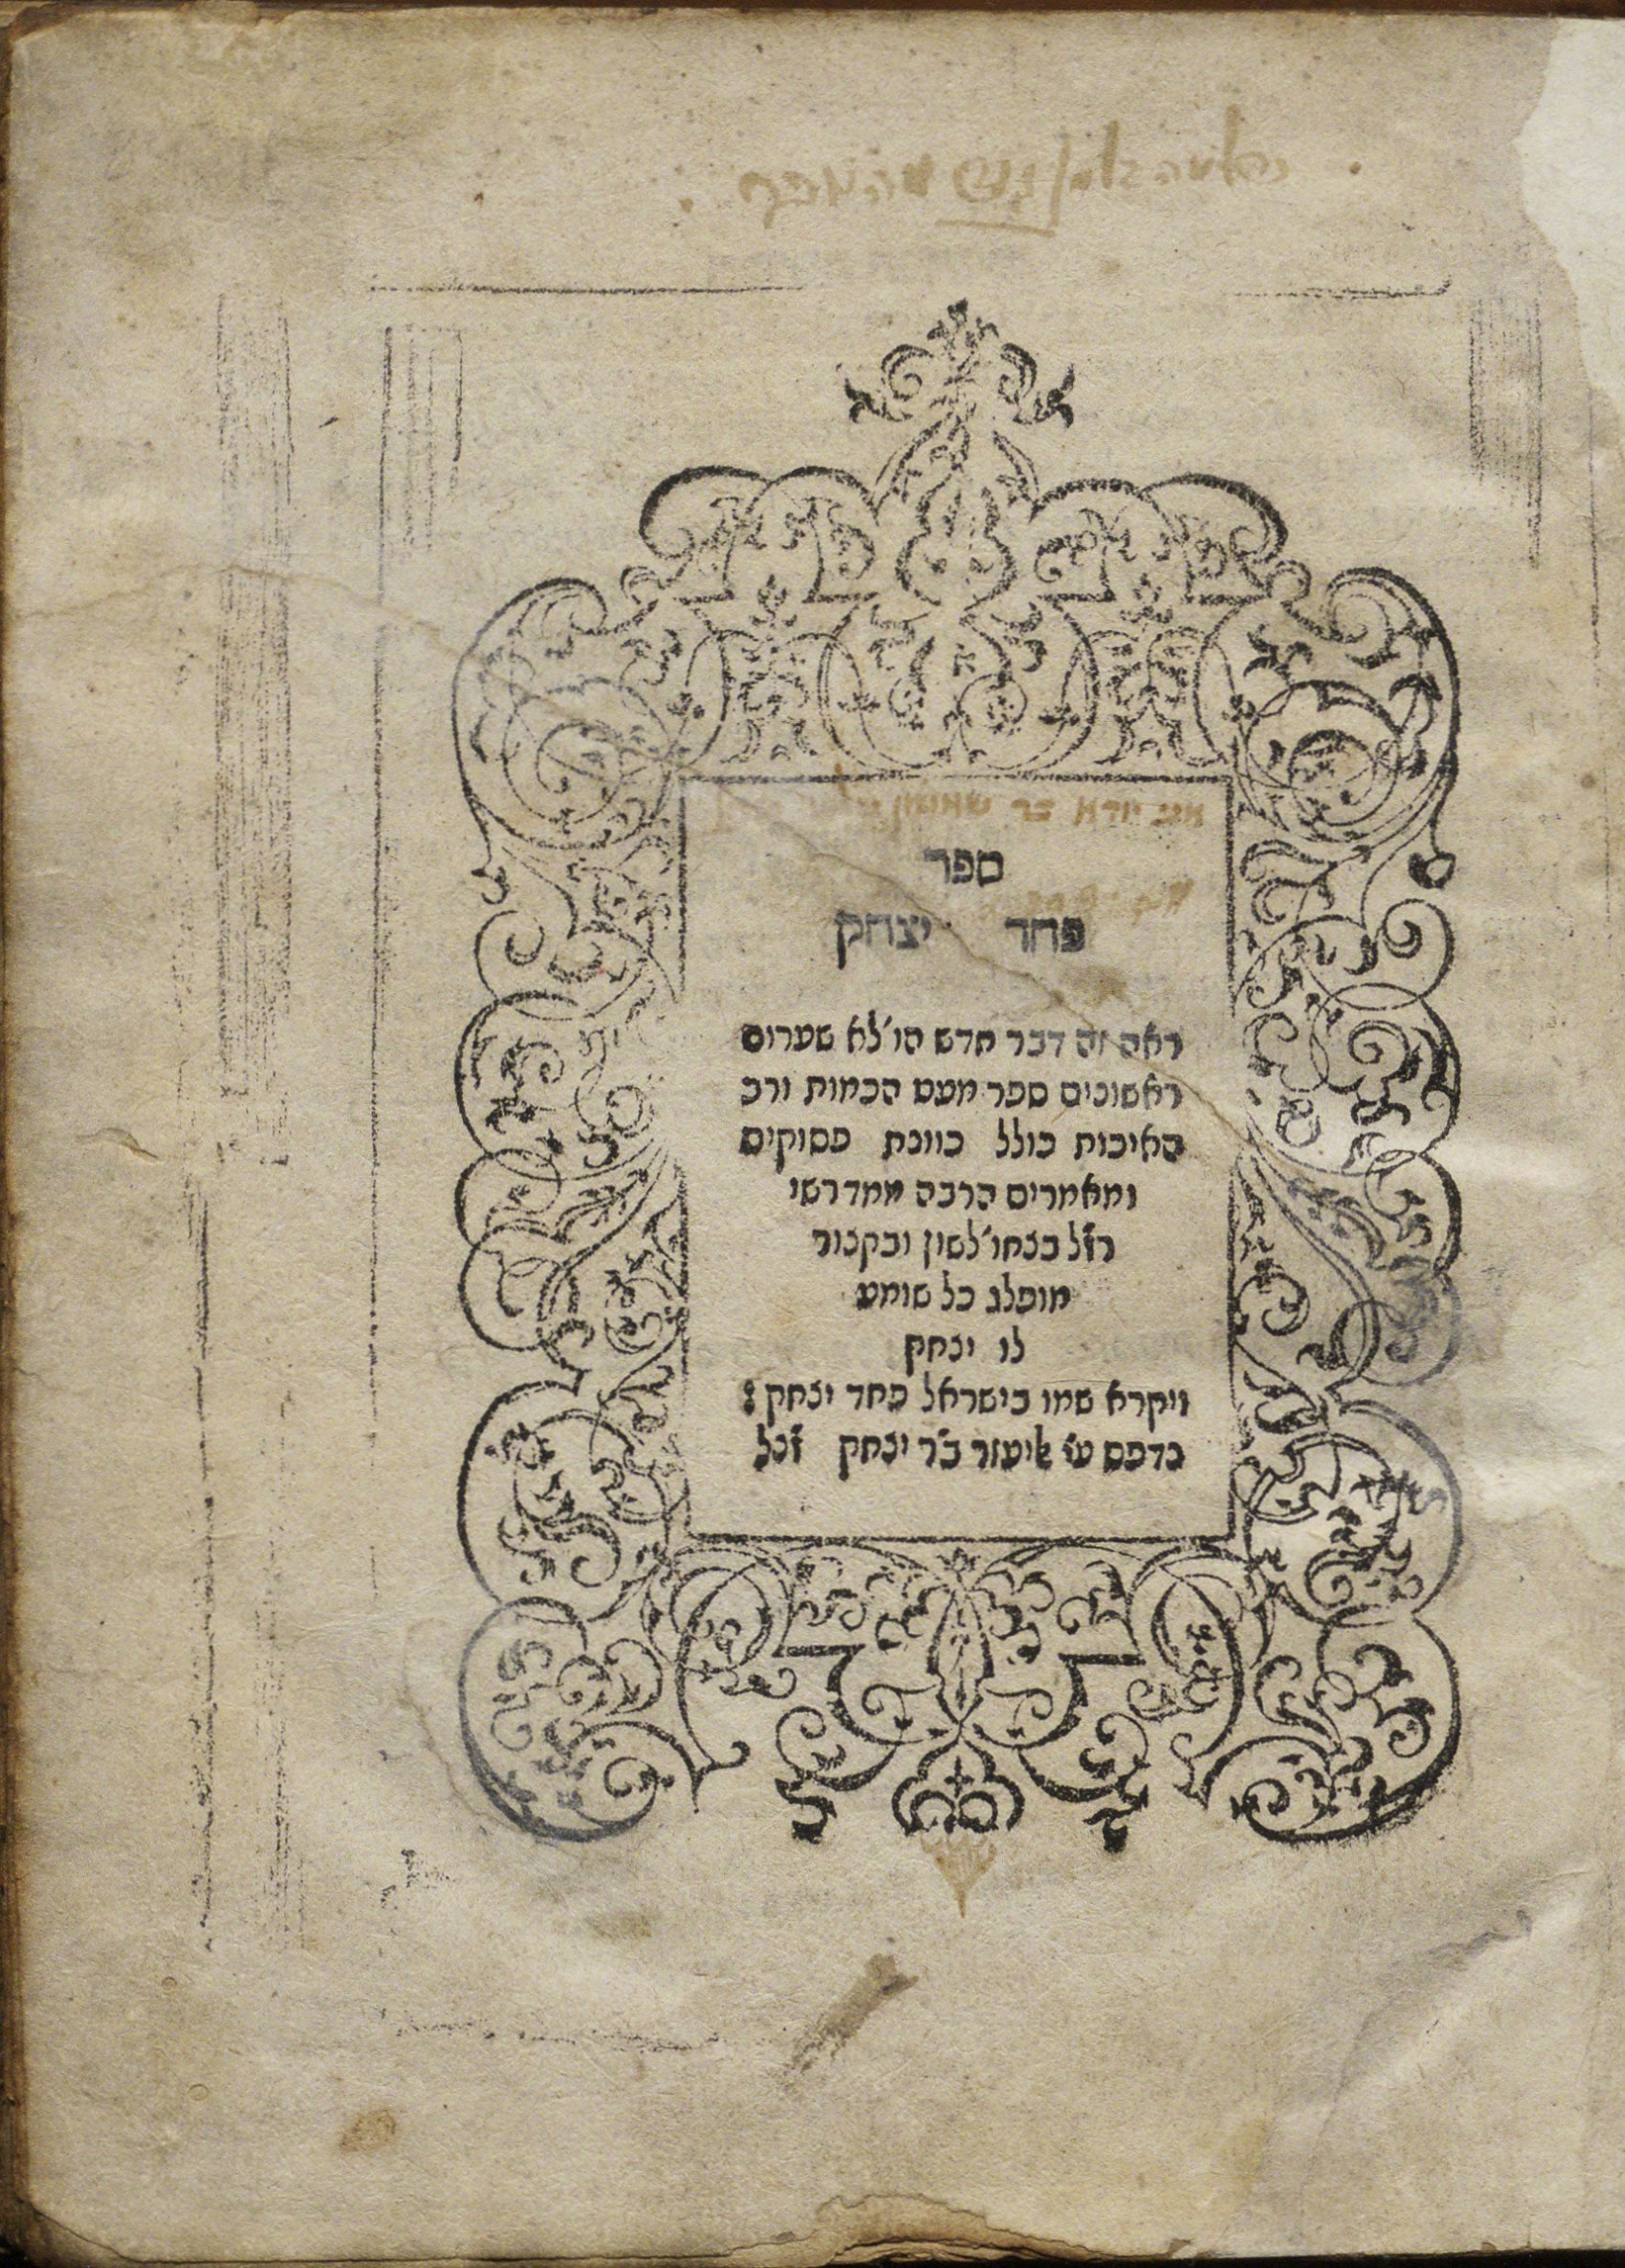 ספר
פחד יצחק
ראה זה דבר חדש הו׳ לא שערום
ראשונים ספר מעט הכמות ורב
האיכות כולל כוונת פסוקים
ומאמרים הרבה ממדרשי
רז״ל בצחו׳ לשון ובקצור
מופלג כל שומע
לו יצחק
ויקרא שמו בישראל פחד יצחק :
נדפס ע״י אליעזר ב״ר יצחק זצ״ל